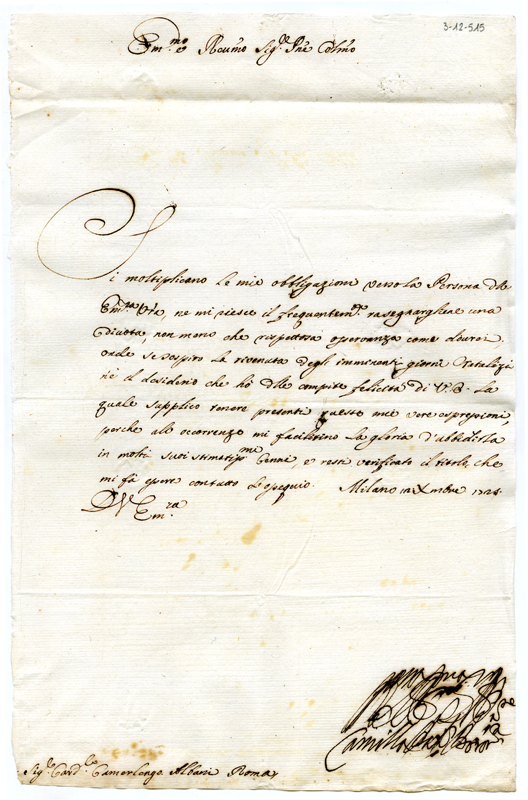 3-12-515
Em.mo Sig.r
Si moltiplicano le mie obbligazioni verso la Persona dell'
Em.za Vra, ne mi riesce il frequentem.te rasegnarghene una
divota, non meno che rispettosa operanza come dovrei.
onde se sospiro la venuta degli imminenti giorni Natalizi
il desiderio che hò delle compite felicità di V.E. la
quale supplico tenere presenti queste mie vere espressioni,
perche alle occorrenze mi facilitino la gloria d'ubbidirla
in molti suoi stimatiss.mi Cenni, e resti verificato il titolo, che
mi fà essere con tutto l'ossequio. Milano Xmbre
D V Em.za
Sig.r Card.le Camerlengo Albani Roma